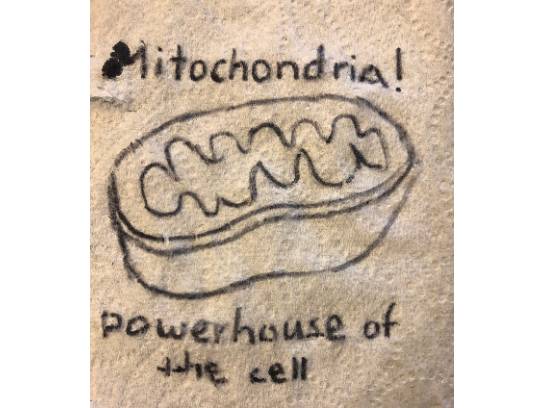 Mitochondria!
powerhouse of
the cell